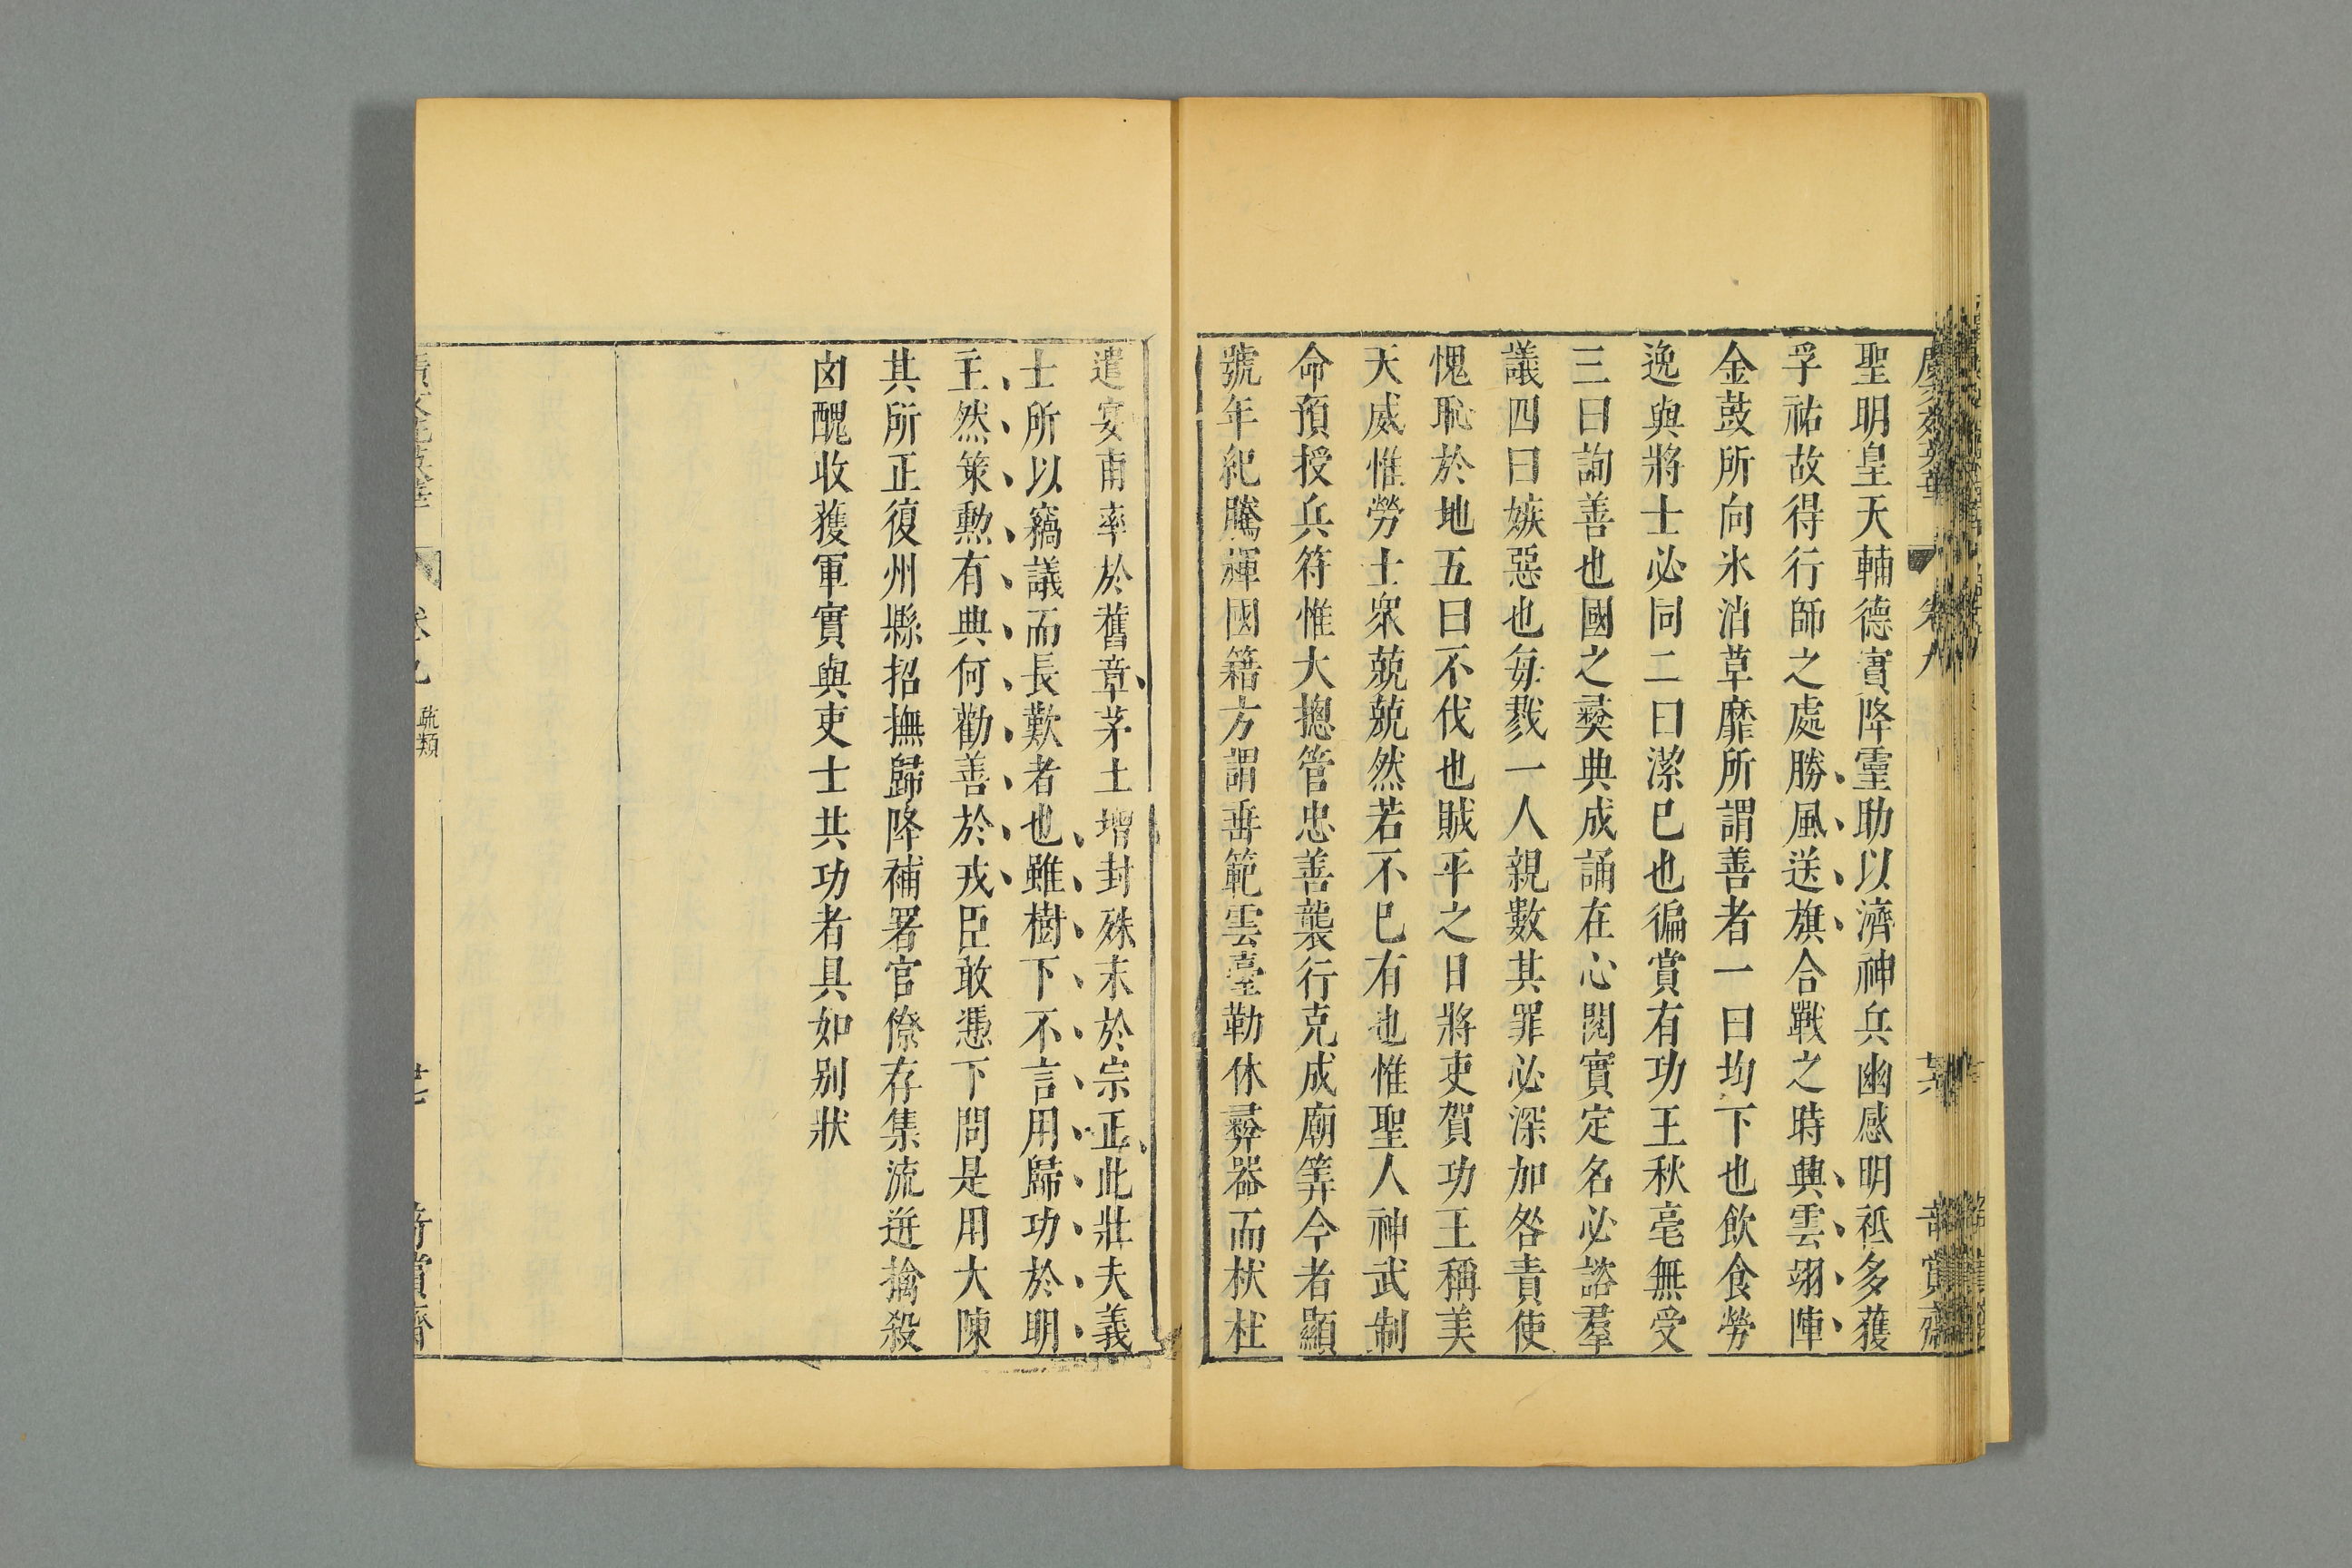 聖明皇天輔德實降靈助以濟神兵幽感明祗多獲
孚祐故得行師之處勝風送旗合戰之時興雲翊陣
金鼓所向氷消草靡所謂善者一曰均下也飲食勞
逸與將士必同二曰潔巳也徧賞有功王秋毫無受
三曰詢善也國之彜典成誦在心閱實定名必諮羣
議四曰嫉惡也每戮一人親數其罪必深加咎責使
愧恥於地五曰不伐也賊平之日將吏賀功王稱美
天威惟勞士衆兢兢然若不巳有也惟聖人神武制
命預授兵符惟大摠管忠善襲行克成廟筭今者顯
號年紀騰輝國籍方謂垂範雲臺勒休彝器而杕杜
遣宴甫率於舊章茅土增封殊未於宗正此壯夫義
士所以竊議而長歎者也雖樹下不言用歸功於明
主然策勲有典何勸善於戎臣敢憑下問是用大陳
其所正復州縣招撫歸降補署官僚存集流迸擒殺
囟醜收獲軍實與吏士共功者具如别狀
卷九
疏類